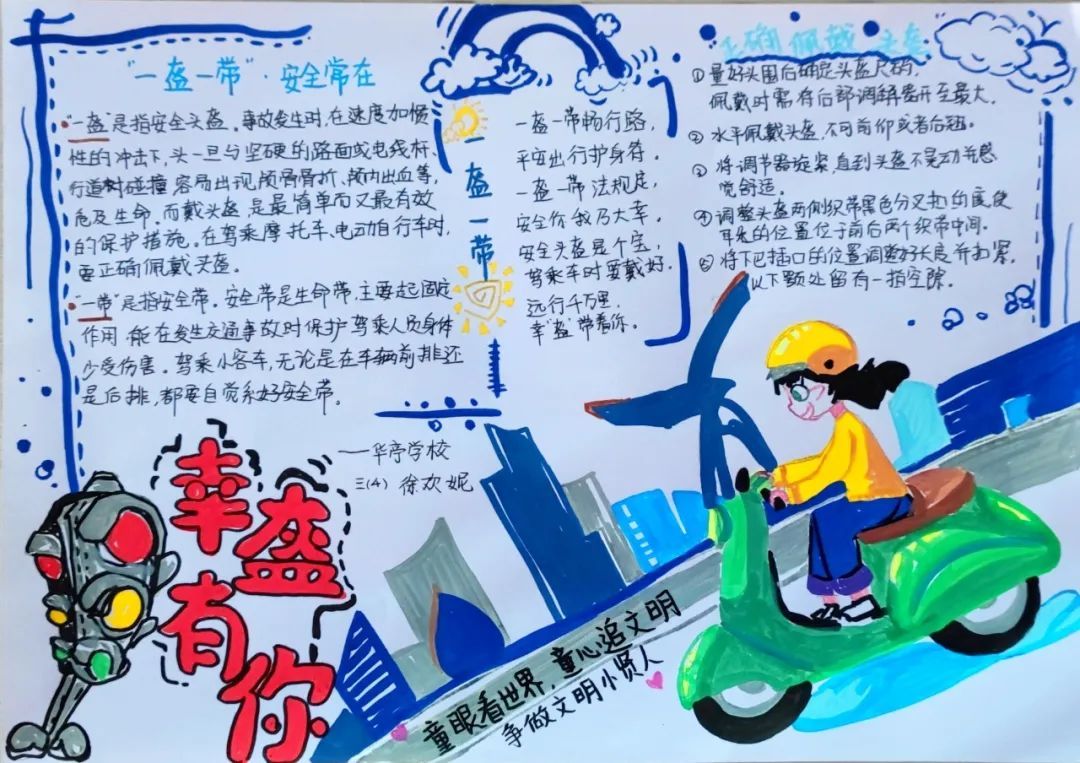 "一盔一带"·安全常在
"一盔"是指安全头盔。事故发生时,在速度加惯
性的冲击下,头一旦与坚硬的路面或电线杆、
行道树碰撞,容易出现颅骨骨折、颅内出血等,
危及生命。而戴头盔,是最简单而又最有效
的保护措施。在驾乘摩托车、电动自行车时,
要正确佩戴头盔。
"一带"是指安全带。安全带是生命带,主要起固定
作用,能在发生交通事故时保护驾乘人员身体
少受伤害。驾乘小客车,无论是在车辆前排还
是后排,都要自觉系好安全带。
一盔一带
一盔一带畅行路,
平安出行护身符。
一盔一带法规定,
安全你我乃大幸。
安全头盔是个宝,
驾乘车时要戴好,
远行千万里,
幸"盔"带着你。
正确佩戴头盔
①量好头围后确定头盔尺码,
佩戴时需将后部调节器开至最大。
②水平佩戴头盔,不可前仰或者后翘。
③将调节器旋紧,直到头盔不晃动并感
觉舒适。
④调整头盔两侧织带黑色分叉扣的度使
耳朵的位置位于前后两个织带中间。
⑤将下巴插口的位置调整好长度并扣紧,
以下颚处留有一指空隙。
——华亭学校
三(4) 徐欢妮
幸盔
有你
童眼看世界,童心追文明
争做文明小贤人